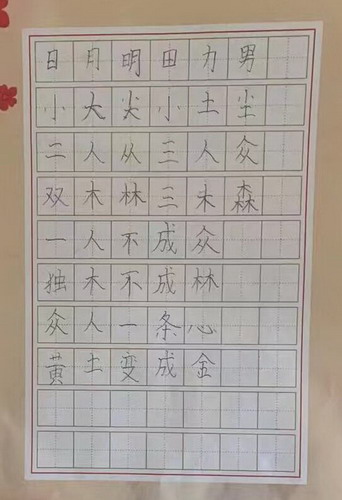 日月明田力男
小大尖小土尘
二人从三人众
双木林三木森
一人不成众
独木不成林
众人一条心
黄土变成金